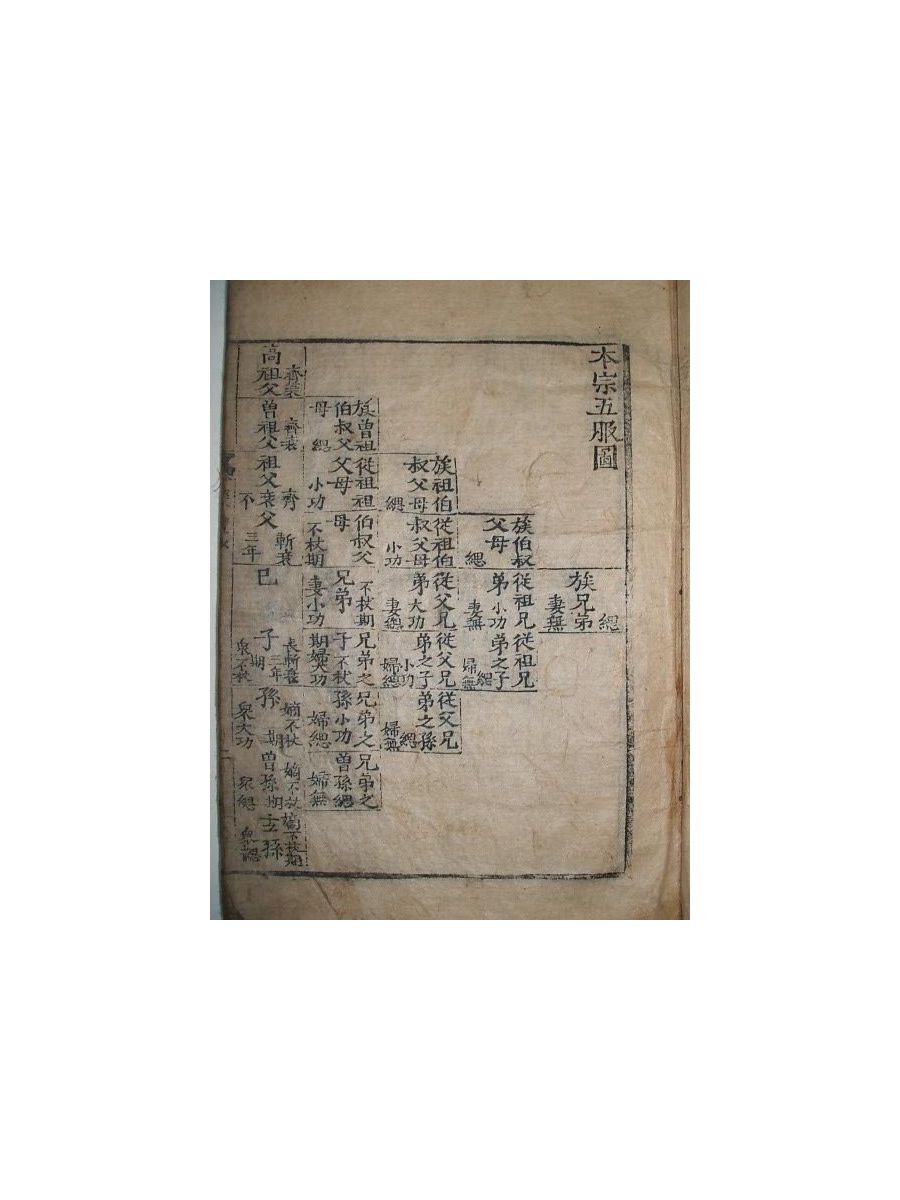 本宗五服圖
族兄弟
緦
妻無
族伯叔
父母
緦
從祖兄
弟
小功
妻無
從祖兄
弟之子
緦
婦無
族祖伯
叔父母
緦
從祖伯
叔父母
小功
從父兄
弟
大功
妻緦
從父兄
弟之子
小功
婦緦
從父兄
弟之孫
緦
婦無
族曾祖
伯叔父
母
緦
從祖祖
父母
小功
伯叔父
母
不杖期
兄弟
不杖期
妻小功
兄弟之
子不杖
期婦大功
兄弟之
孫小功
婦緦
兄弟之
曾孫緦
婦無
高祖父
齊衰
曾祖父
齊衰
祖父
齊
衰
不
父
斬衰
三年
己
子
長斬衰
三年
期
衆不杖
孫
嫡不杖
期
衆大功
曾孫
嫡不杖
期
衆緦
玄孫
嫡不杖期
衆緦